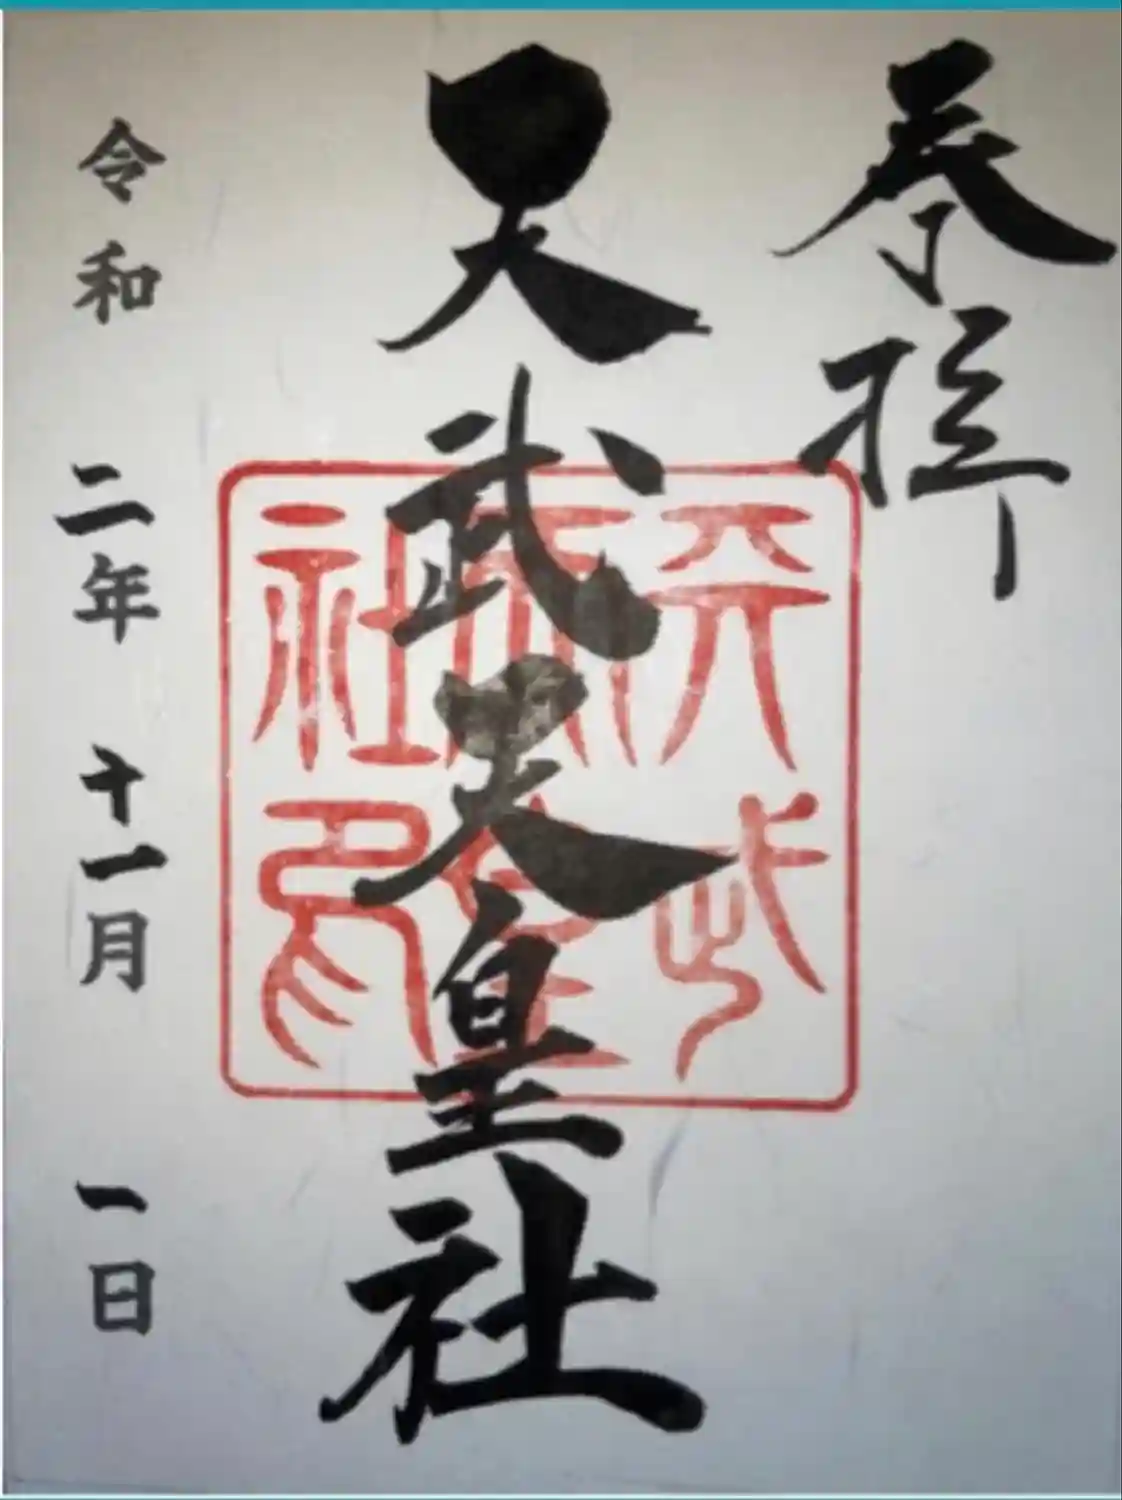 奉拝
天武天皇社
天武天皇社印
令和 二年 十一月 一日